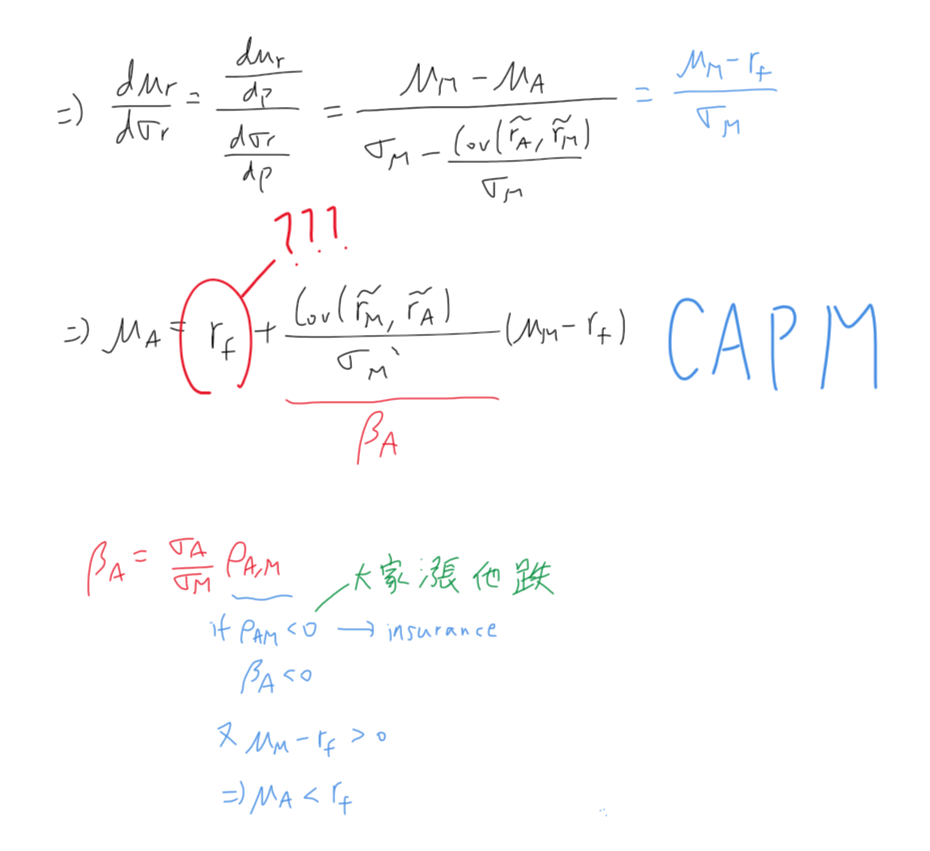 => dμr/dσr = (dμr/dp)/(dσr/dp) = (μM - μA)/(σM - Cov(r̃A, r̃M)/σM) = (μM - rf)/σM
???
=> μA = rf + Cov(r̃M, r̃A)/σM` (μM - rf) CAPM
βA
βA = σA/σM ρA,M
大家漲他跌
if ρAM < 0 → insurance
βA < 0
又 μM - rf > 0
=> μA < rf